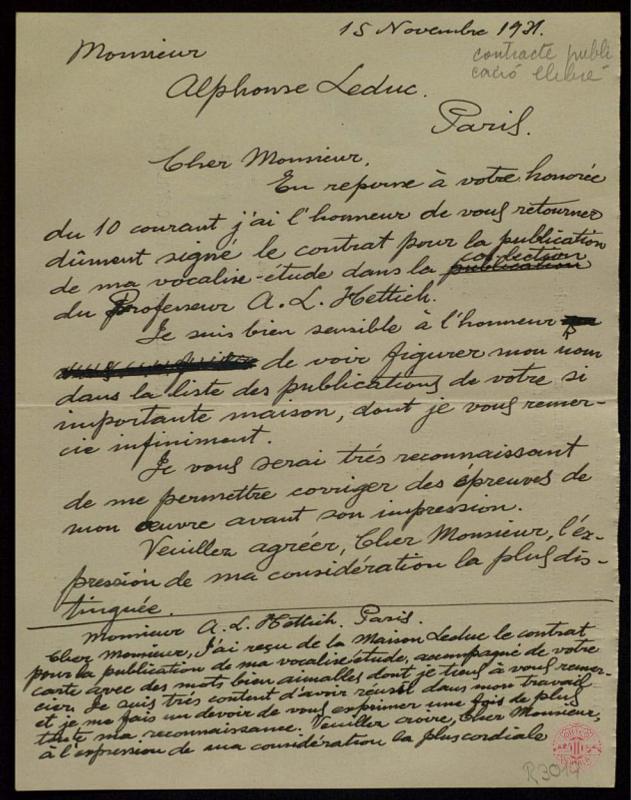 15 Novembre 1931.
contracte publi
cació
Monsieur
Alphonse Leduc.
Paris.
Cher Monsieur,
En reponse à votre honorée
du 10 courant j'ai l'honneur de vous retourner
dûment signé le contrat pour la publication
de ma vocalise-étude dans la publication collection
du Professeur A. L. Hettich.
Je suis bien sensible à l'honneur
de voir figurer mon nom
dans la liste des publications de votre si
importante maison, dont je vous remer-
cie infiniment.
Je vous serai trés reconnaissant
de me permettre corriger des épreuves de
mon œuvre avant son impression.
Veuillez agréer, Cher Monsieur, l'éx-
pression de ma considération la plus dis-
tinguée.
Monsieur A. L. Hettich. Paris.
Cher Monsieur, J'ai reçu de la Maison Leduc le contrat
pour la publication de ma vocalise-étude, accompagné de votre
carte avec des mots bien aimables dont je tiens à vous remer-
cier. Je suis trés content d'avoir réussi dans mon travail
et je me fais un devoir de vous exprimer une fois de plus
toute ma reconnaissance. Veuillez croire, Cher Monsieur,
à l'expression de ma considération la plus cordiale
R3014